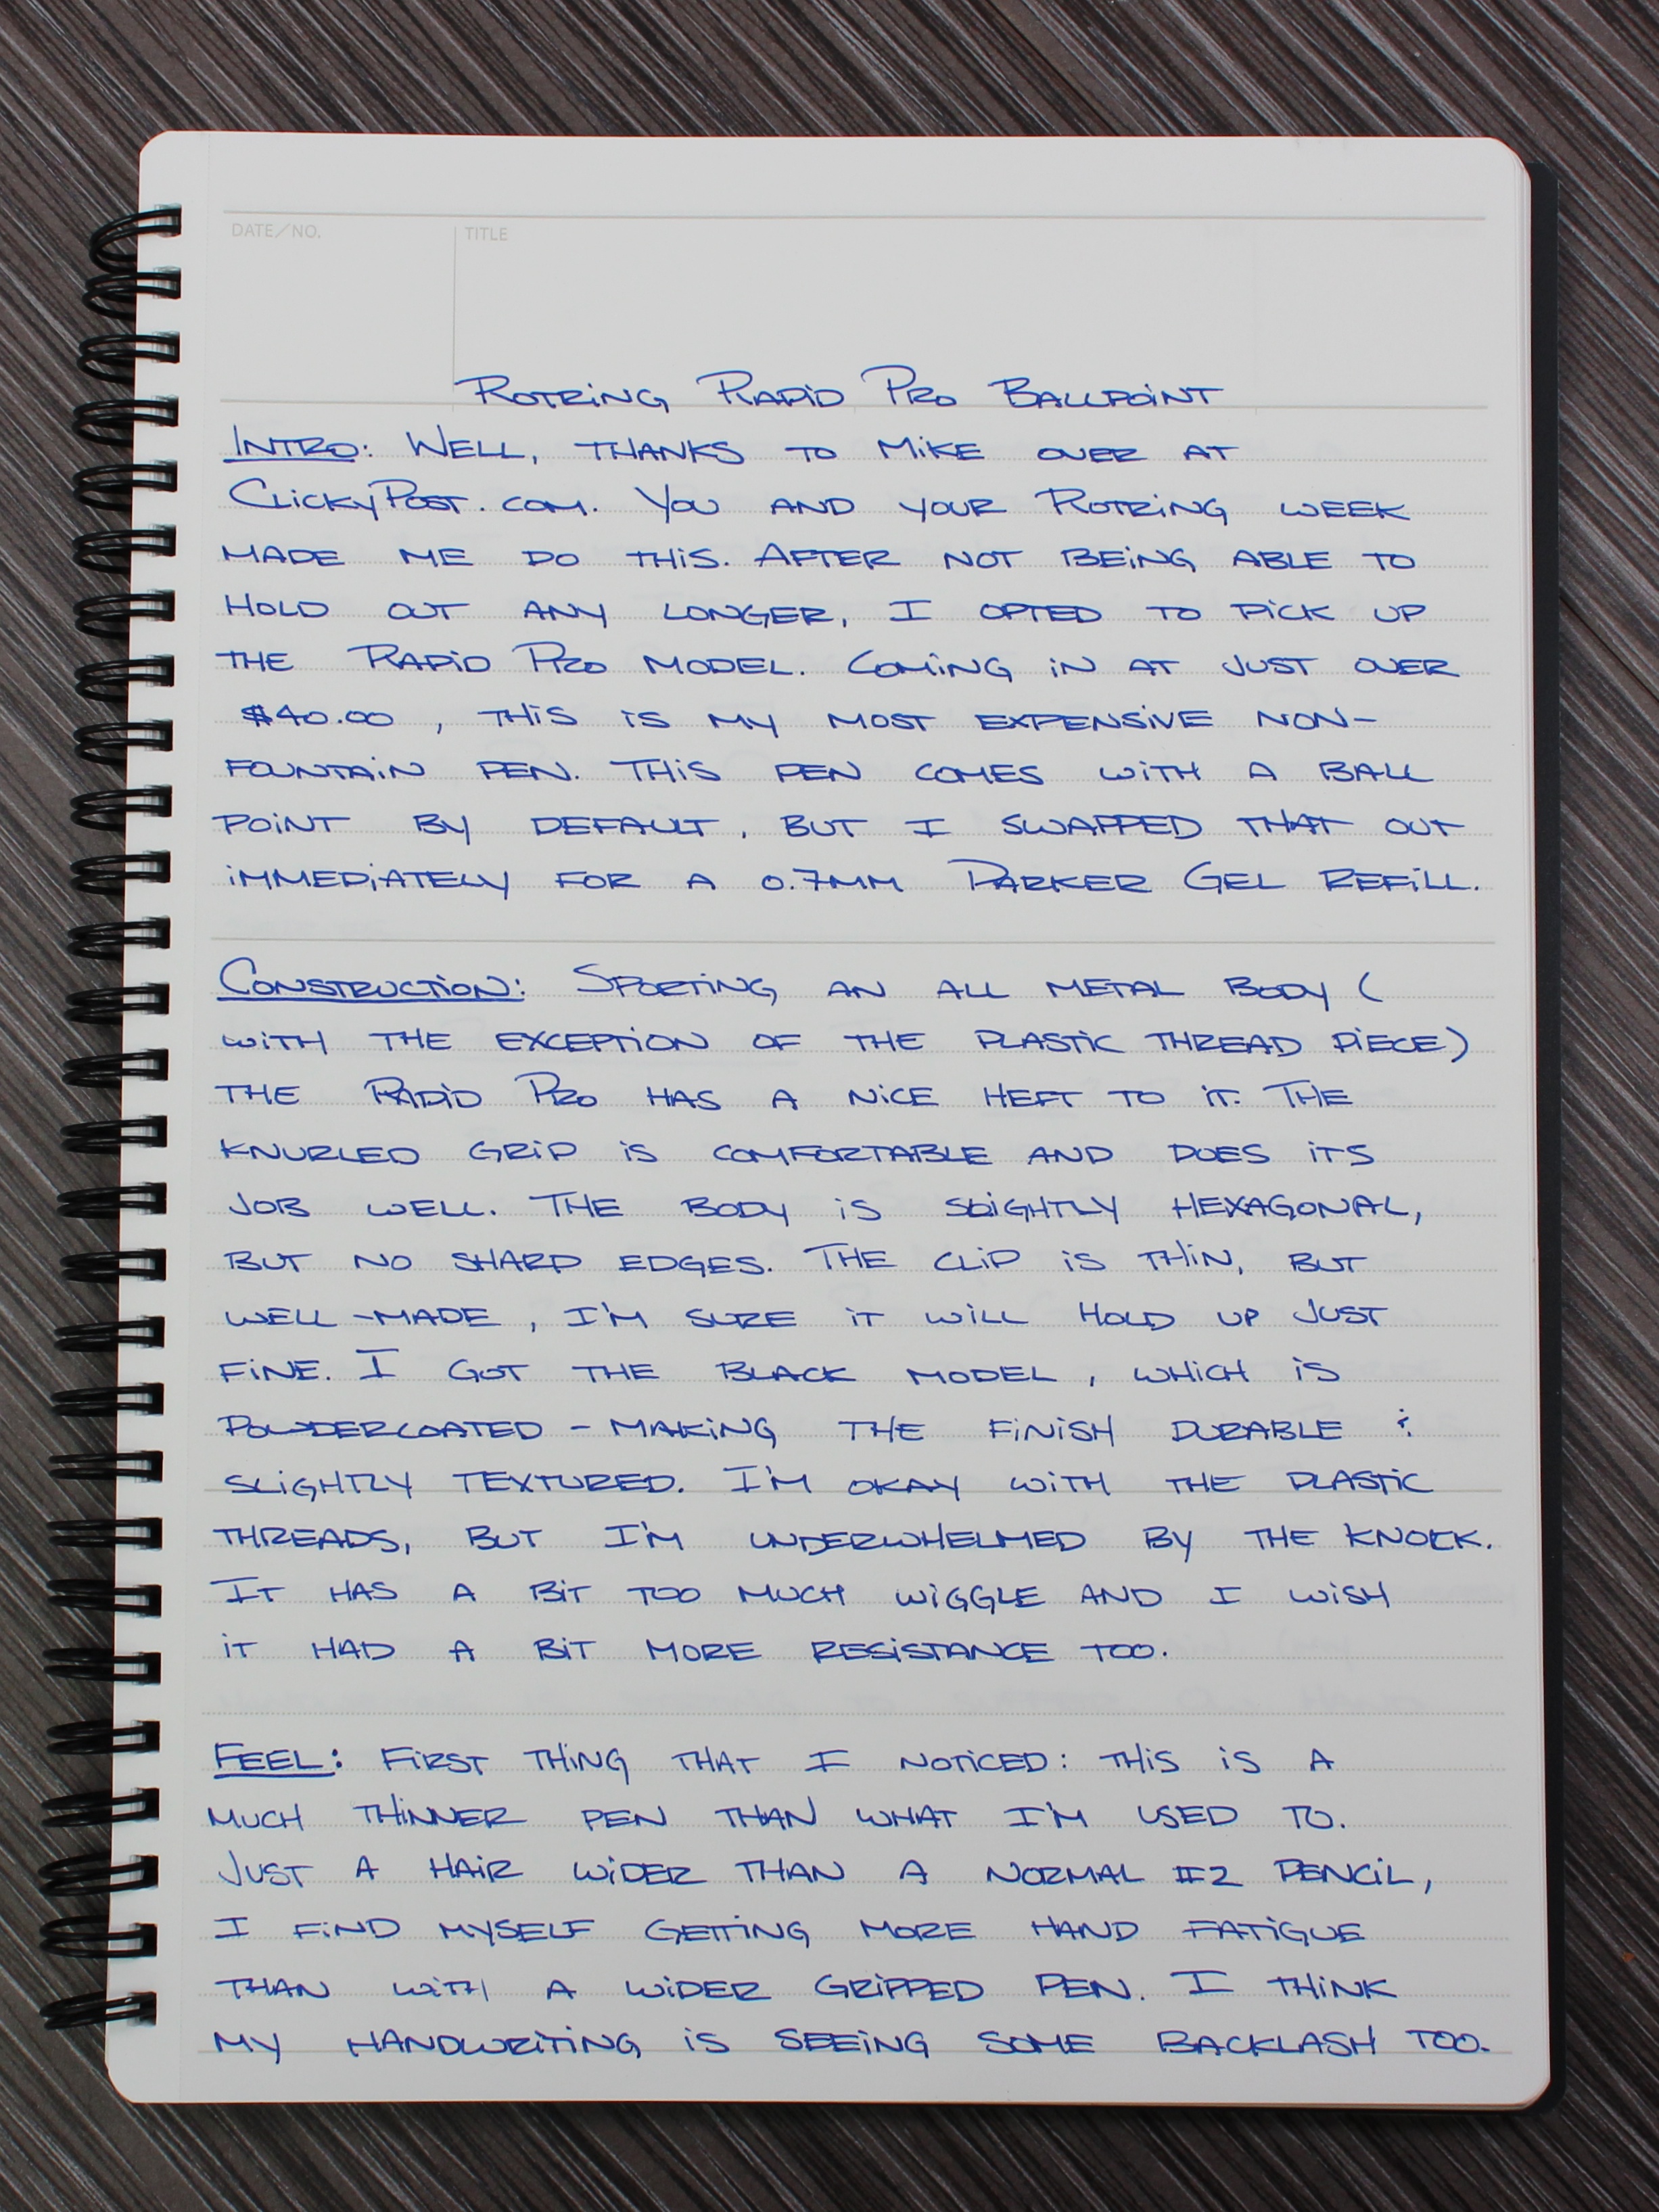 DATE/NO.
TITLE
ROTRiNG RAPiD PRO BALLPOiNT
INTRO: WELL, THANKS TO MiKE OVER AT
CLiCKYPOST.COM. YOU AND YOUR ROTRiNG WEEK
MADE ME DO THiS. AFTER NOT BEiNG ABLE TO
HOLD OUT ANY LONGER, I OPTED TO PiCK UP
THE RAPiD PRO MODEL. COMiNG iN AT JUST OVER
$40.00, THiS iS MY MOST EXPENSiVE NON-
FOUNTAiN PEN. THiS PEN COMES WiTH A BALL
POiNT BY DEFAULT, BUT I SWAPPED THAT OUT
iMMEDiATELY FOR A 0.7MM PARKER GEL REFiLL.
CONSTRUCTiON: SPORTiNG AN ALL METAL BODY (
WiTH THE EXCEPTiON OF THE PLASTiC THREAD PiECE)
THE RAPiD PRO HAS A NiCE HEFT TO iT. THE
KNURLED GRiP iS COMFORTABLE AND DOES iTS
JOB WELL. THE BODY iS SLiGHTLY HEXAGONAL,
BUT NO SHARP EDGES. THE CLiP iS THiN, BUT
WELL-MADE, I'M SURE iT WiLL HOLD UP JUST
FiNE. I GOT THE BLACK MODEL, WHiCH iS
POWDERCOATED - MAKiNG THE FiNiSH DURABLE &
SLiGHTLY TEXTURED. I'M OKAY WiTH THE PLASTiC
THREADS, BUT I'M UNDERWHELMED BY THE KNOCK.
IT HAS A BiT TOO MUCH WiGGLE AND I WiSH
iT HAD A BiT MORE RESiSTANCE TOO.
FEEL: FiRST THiNG THAT I NOTiCED: THiS iS A
MUCH THiNNER PEN THAN WHAT I'M USED TO.
JUST A HAiR WiDER THAN A NORMAL #2 PENCiL,
I FiND MYSELF GETTiNG MORE HAND FATiGUE
THAN WiTH A WiDER GRiPPED PEN. I THiNK
MY HANDWRiTiNG iS SEEiNG SOME BACKLASH TOO.